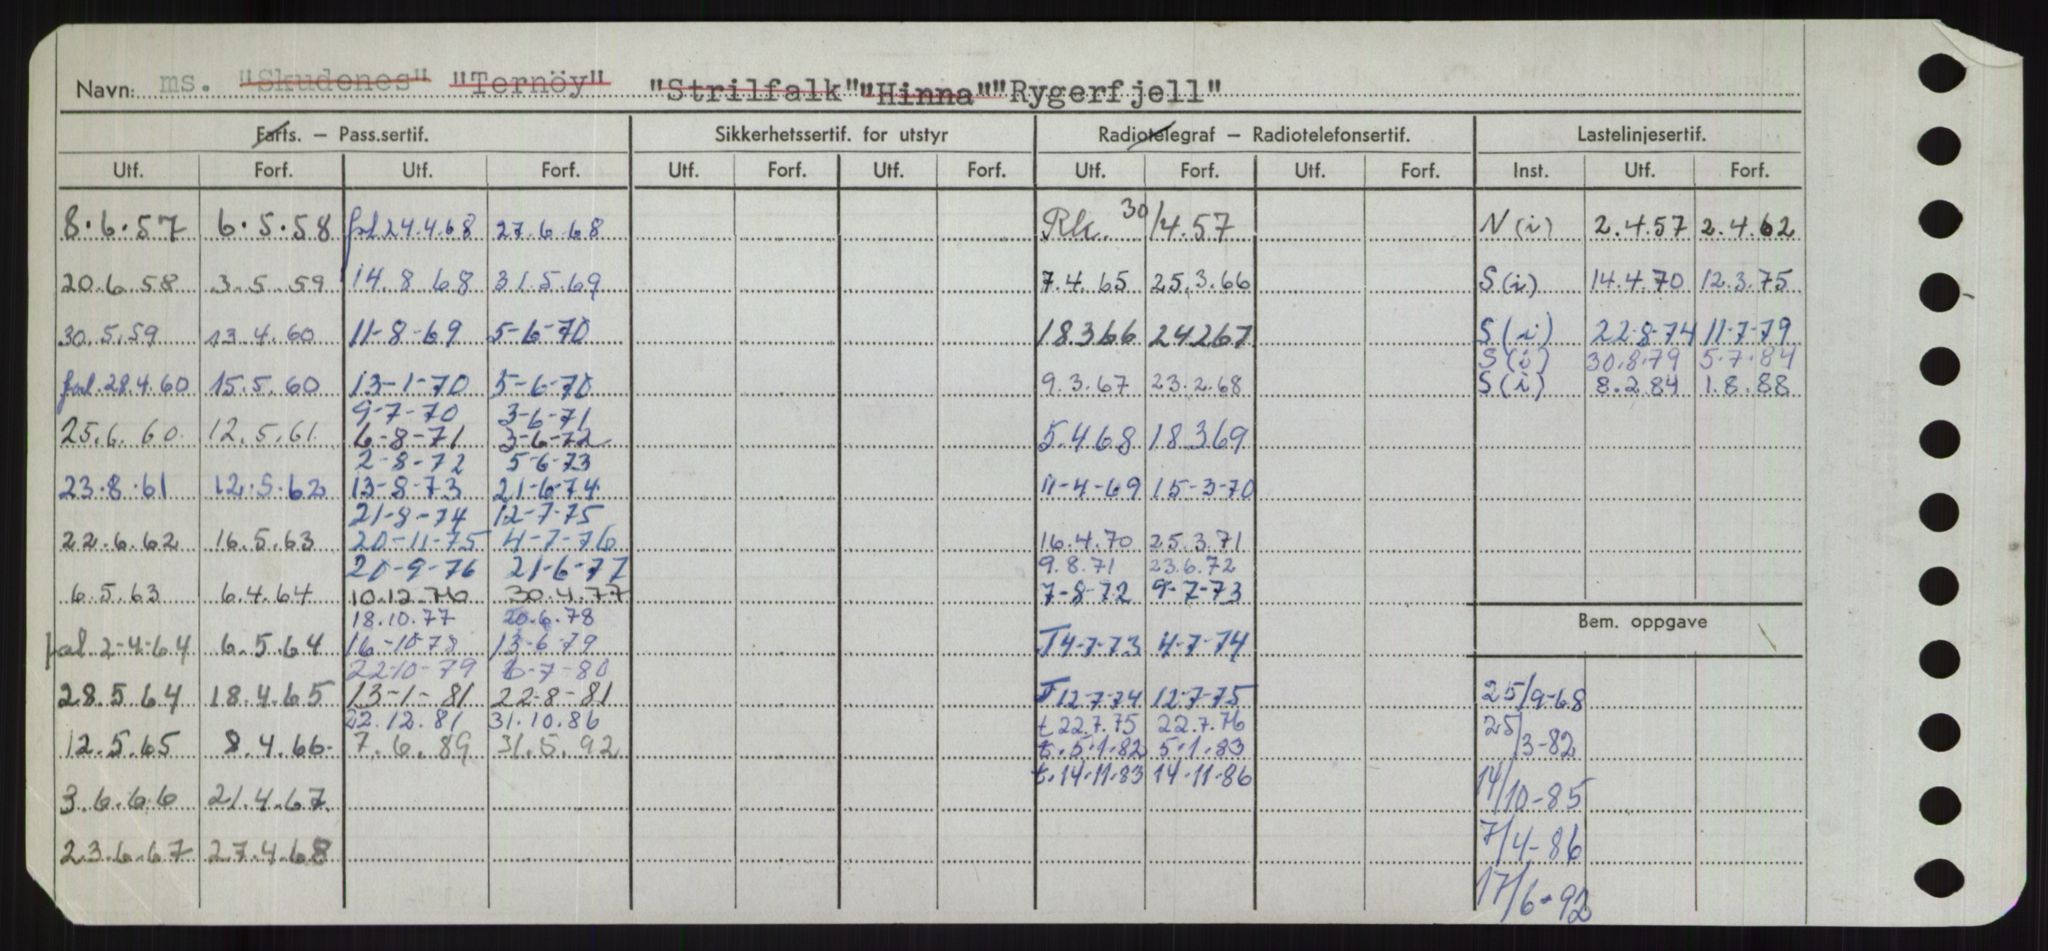 Navn: ms. "Skudenes" "Ternöy" "Strilfalk" "Hinna" "Rygerfjell"
Farts. – Pass.sertif. Sikkerhetssertif. for utstyr Radiotelegraf – Radiotelefonsertif. Lastelinjesertif.
Utf. Forf. Utf. Forf. Utf. Forf. Utf. Forf. Utf. Forf. Utf. Forf. Inst. Utf. Forf.
8.6.57 6.5.58 fal 24.4.68 27.6.68 Rk. 30/4.57 N(i) 2.4.57 2.4.62
20.6.58 3.5.59 14.8.68 31.5.69 7.4.65 25.3.66 S(i) 14.4.70 12.3.75
30.5.59 13.4.60 11-8-69 5-6-70 18366 24267 S(i) 22-8-74 11-7-79
S(i) 30.8.79 5.7.84
fal.28.4.60 15.5.60 13-1-70 5-6-70 9.3.67 23.2.68 S(i) 8.2.84 1.8.88
9-7-70 3-6-71
25.6.60 12.5.61 6-8-71 3-6-72 5.4.68 18369
2-8-72 5-6-73
23.8.61 12.5.62 13-8-73 21-6-74 11-4-69 15-3-70
21-8-74 12-7-75
22.6.62 16.5.63 20-11-75 4-7-76 16.4.70 25.3.71
20-9-76 21-6-77 9.8.71 23.6.72
6.5.63 6.4.64 10.12.76 30.4.77 7-8-72 9-7-73
18.10.77 20.6.78 Bem. oppgave
fal.2-4-64 6.5.64 16-10-78 13-6-79 T4-7-73 4-7-74
22-10-79 6-7-80
28.5.64 18.4.65 13-1-81 22-8-81 T12.7.74 12-7-75 25/9-68
22.12.81 31.10.86 t 22.7.75 22.7.76
12.5.65 8.4.66 7.6.89 31.5.92 t.5.1.82 5.1.83 25/3-82
t.14.11.83 14-11-86
3.6.66 21.4.67 14/10-85
23.6.67 27.4.68 7/4-86
17/6-92